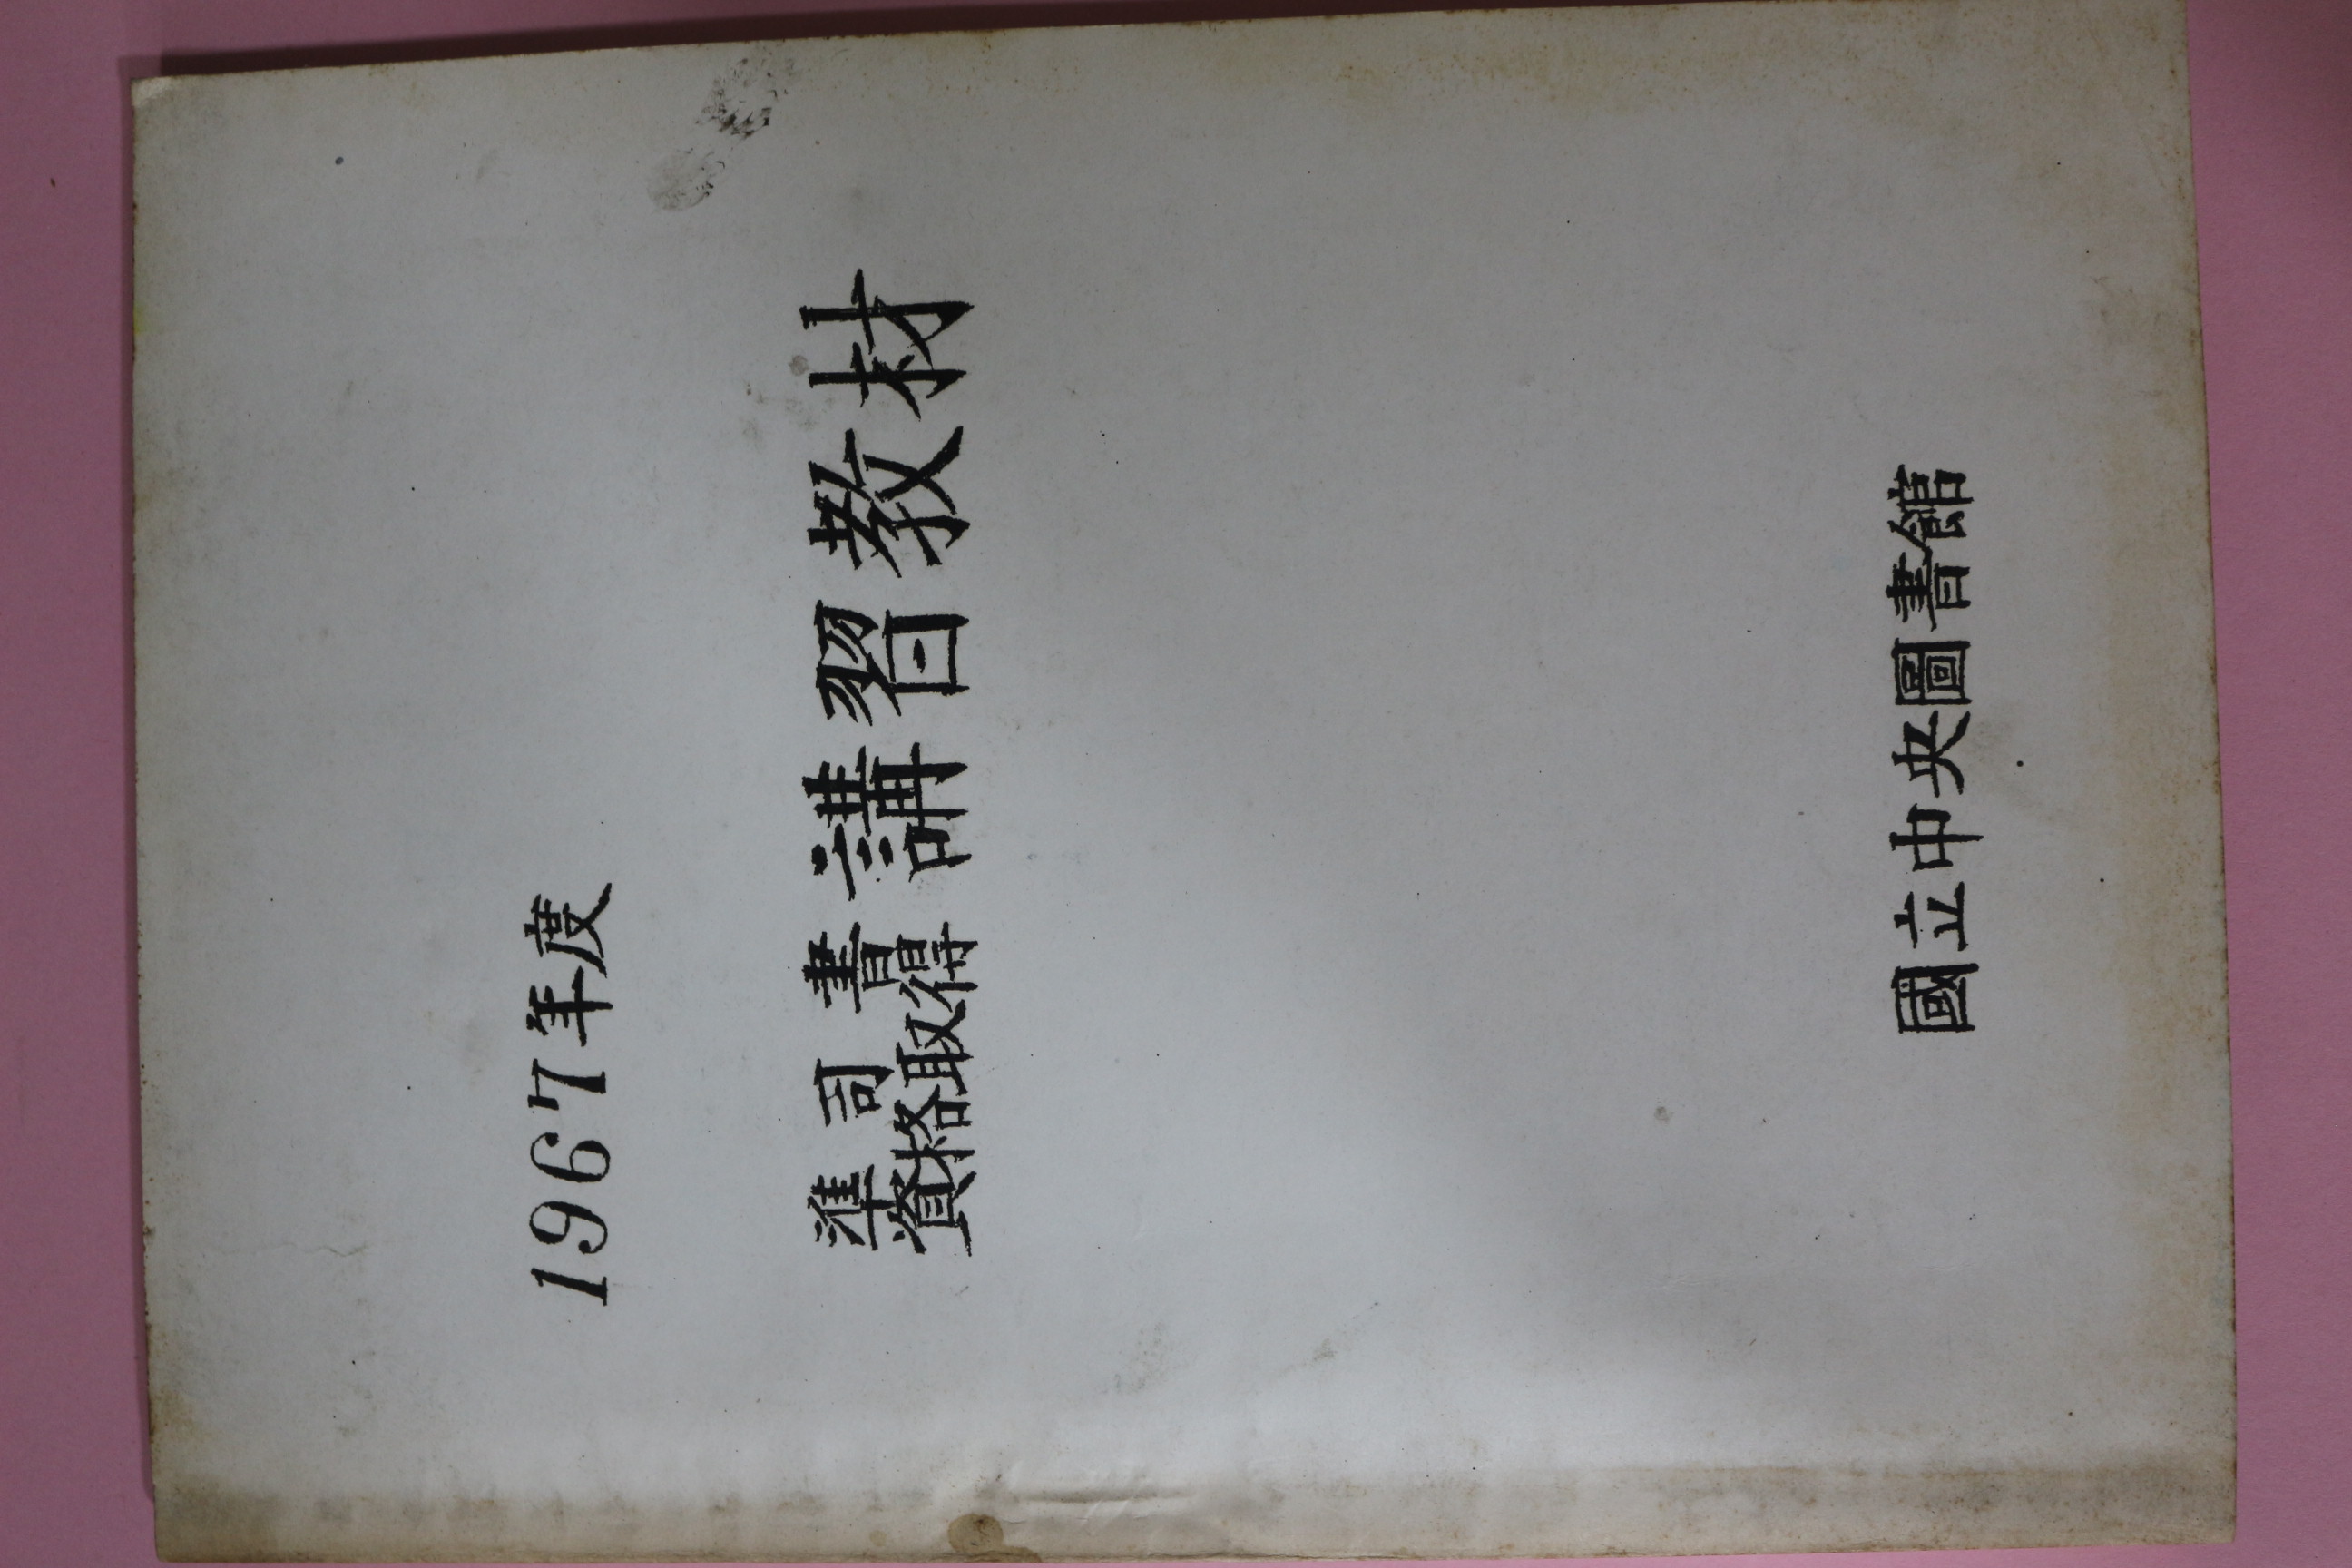 1967年度
準司書
資格取得
講習教材
國立中央圖書館